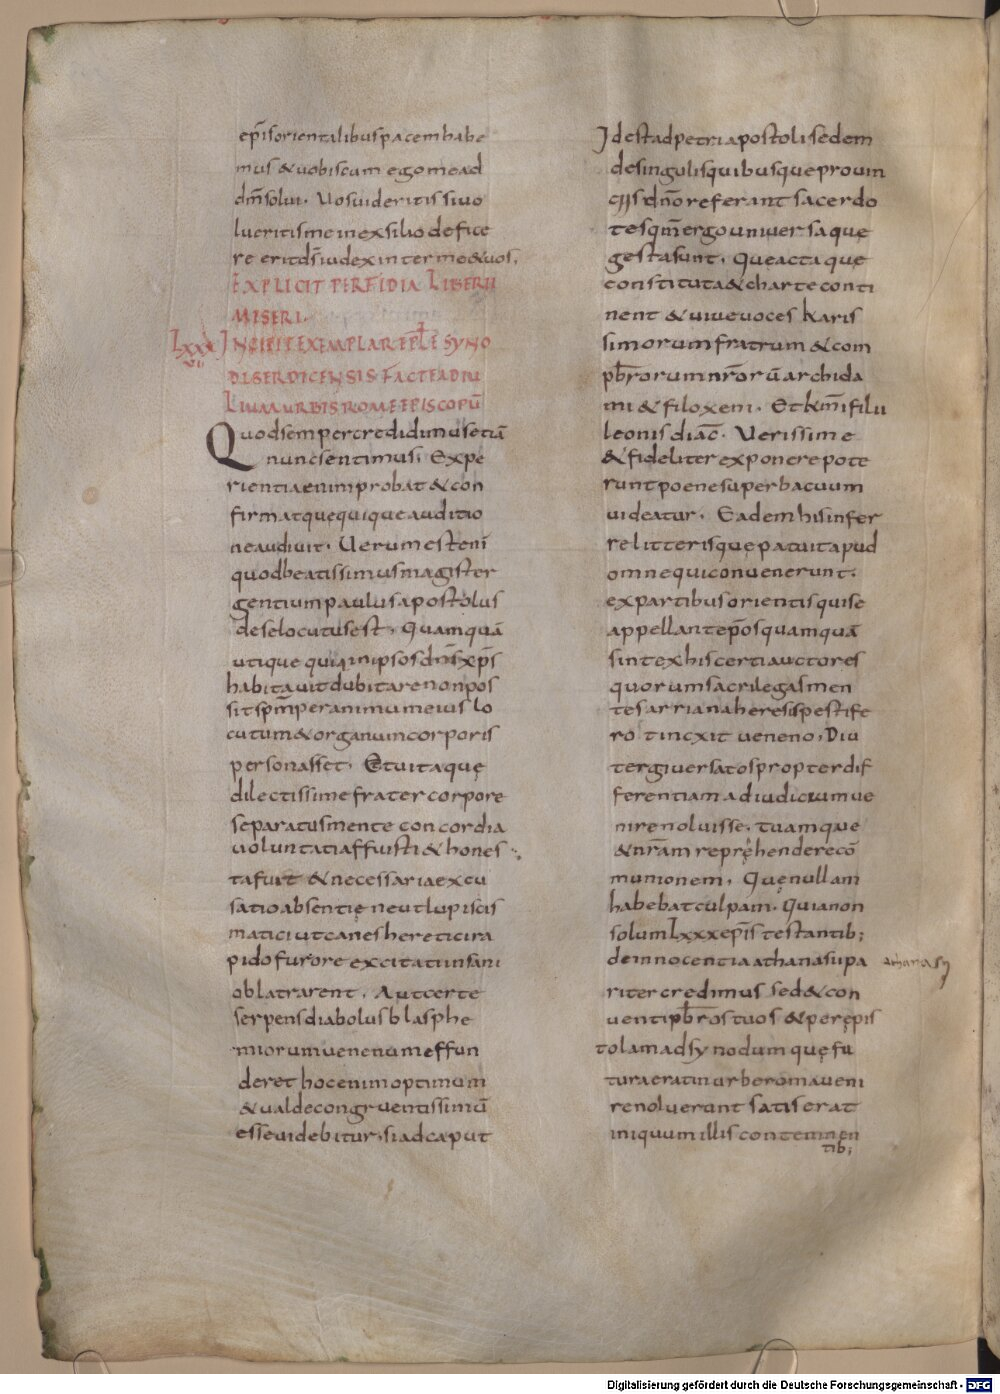 ep̄isorientalibuspacemhabe
mus &uobiscum egomead
dm̄solui. Uosuideritissiuo
lueritismeinexsiliodefice
re eritds̄iudexinterme&uos.
EXPLICIT PERFIDIA LIBERII
MISERI.
LXXXVII INCIPIT EXEMPLAR EPL̄E SYNO
DI SERDICENSIS FACTE AD IU
LIUM URBIS ROME EPISCOPŪ
Quodsempercredidimusetiā
nuncsentimus. Expe
rientiaenimprobat &con
firmatquequiqueauditio
neaudiuit. Uerumestenī
quodbeatissimusmagister
gentiumpaulusapostolus
deselocutusest. Quamquā
utique quiinipsosdn̄sxp̄s
habitauitdubitarenonpos
sitsp̄mperanimumeius lo
cutum &organumcorporis
personasset. Etuitaque
dilectissimefratercorpore
separatusmente concordia
uoluntatiaffuisti &hones
tafuit &necessariaexcu
satioabsentię neutlupiscis
maticiutcanesheretícira
pidofuroreexcitatiinsani
oblatrarent. Autcerte
serpensdiabolusblasphe
miorumuenenumeffun
deret hocenimoptimum
&ualdecongruentissimū
esseuidebitur, siadcaput
Idestadpetriapostolisedem
desingulisquibusqueprouin
ciis dn̄o referant sacerdo
tesqm̄ergouniuersaque
gestasunt. Queactaque
constituta &charteconti
nent &uiueuoces Karis
simorumfratrum &com
pb̄rorumnr̄orūarchida
mi &filoxeni. Etkm̄ifilii
leonisdiac̄. Uerissime
&fideliterexponerepote
runtpoenesuperbacuum
uideatur. Eademhisinfer
relitterisquepatuitapud
omnequiconuenerunt.
expartibusorientisquise
appellantep̄osquamquā
sintexhiscertiauctores
quorumsacrilegasmen
tesarrianaheresispestife
ro tincxit ueneno. Diu
tergiuersatospropterdif
ferentiamadiudiciumue
nirenoluisse. tuamque
&nr̄am reprehenderecō
munionem. Quęnullam
habebatculpam. Quianon
solumLxxxep̄istestantib;
deinnocentiaathanasiipa
athanasy
ritercredimus sed &con
uentipb̄rostuos &perepis
tolamadsynodumquęfu
turaeratinurberomaueni
renoluerunt satiserat
iniquumillis contemnen
tib;
Digitalisierung gefördert durch die Deutsche Forschungsgemeinschaft - DFG